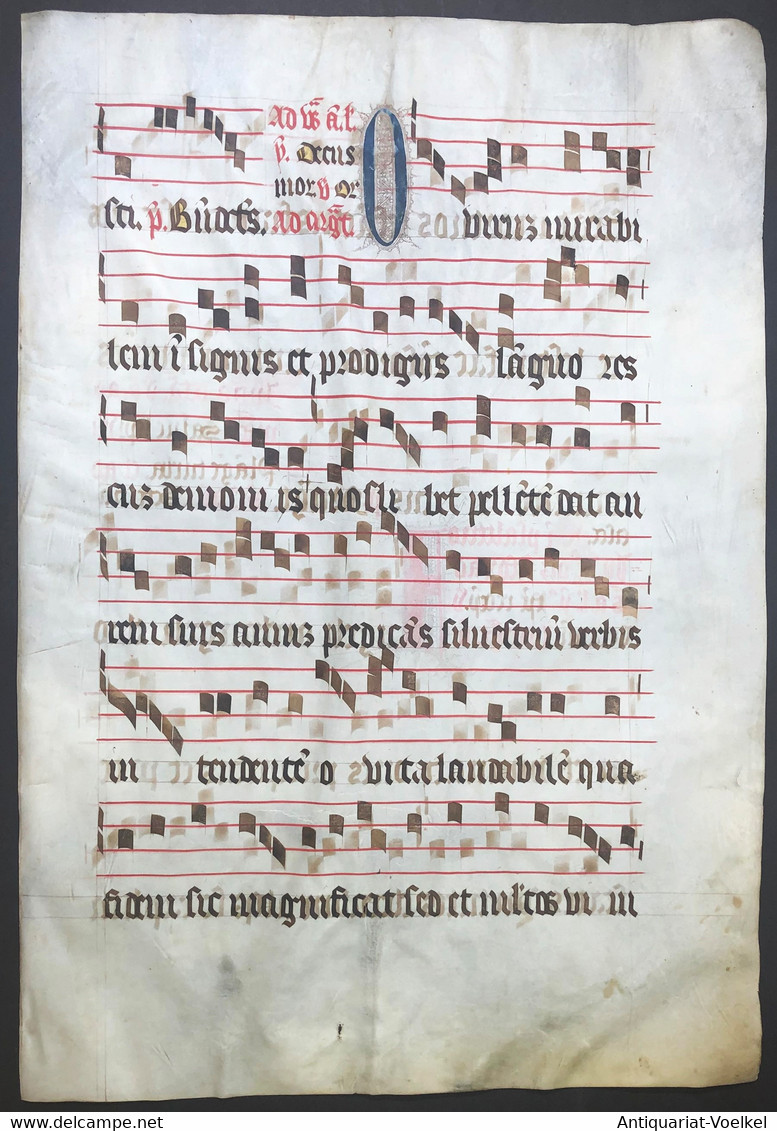 Ad vs̄ a̅ l.
v̄. Decus
mor. v̄ or
sti. p̄. B̄ndcs̄. Ad mgt̄. O virum mirabi
lem ī signis et prodigijs lāguo res
cum demonijs quosli bet pellētē dat au
rem suis auiuz predicās siluestriū verbis
in tendentē o vita laudabilē qua
fidem sic magnificat sed et mltos vi ni
Antiquariat-Voelkel